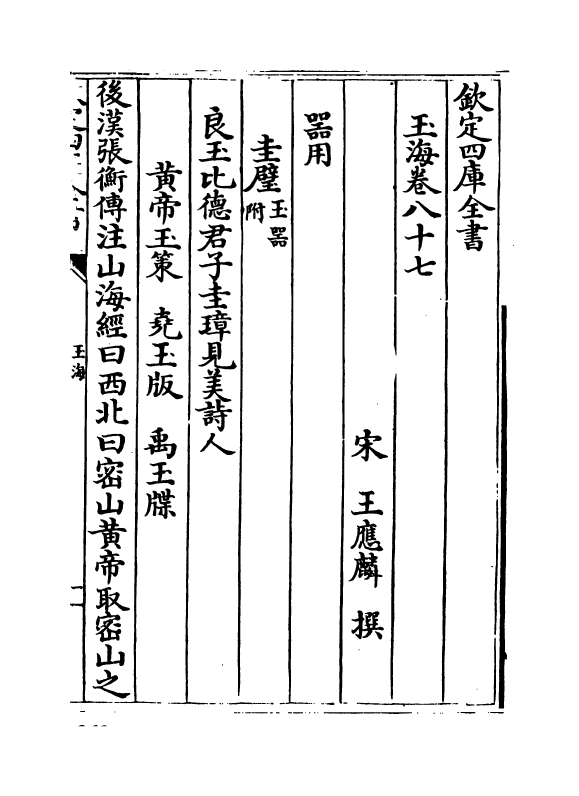 欽定四庫全書
玉海卷八十七
宋 王應麟 撰
器用
圭璧玉器附
良玉比德君子圭璋見美詩人
黄帝玉策 堯玉版 禹玉牒
後漢張衡傳注山海經曰西北曰密山黄帝取密山之
玉海